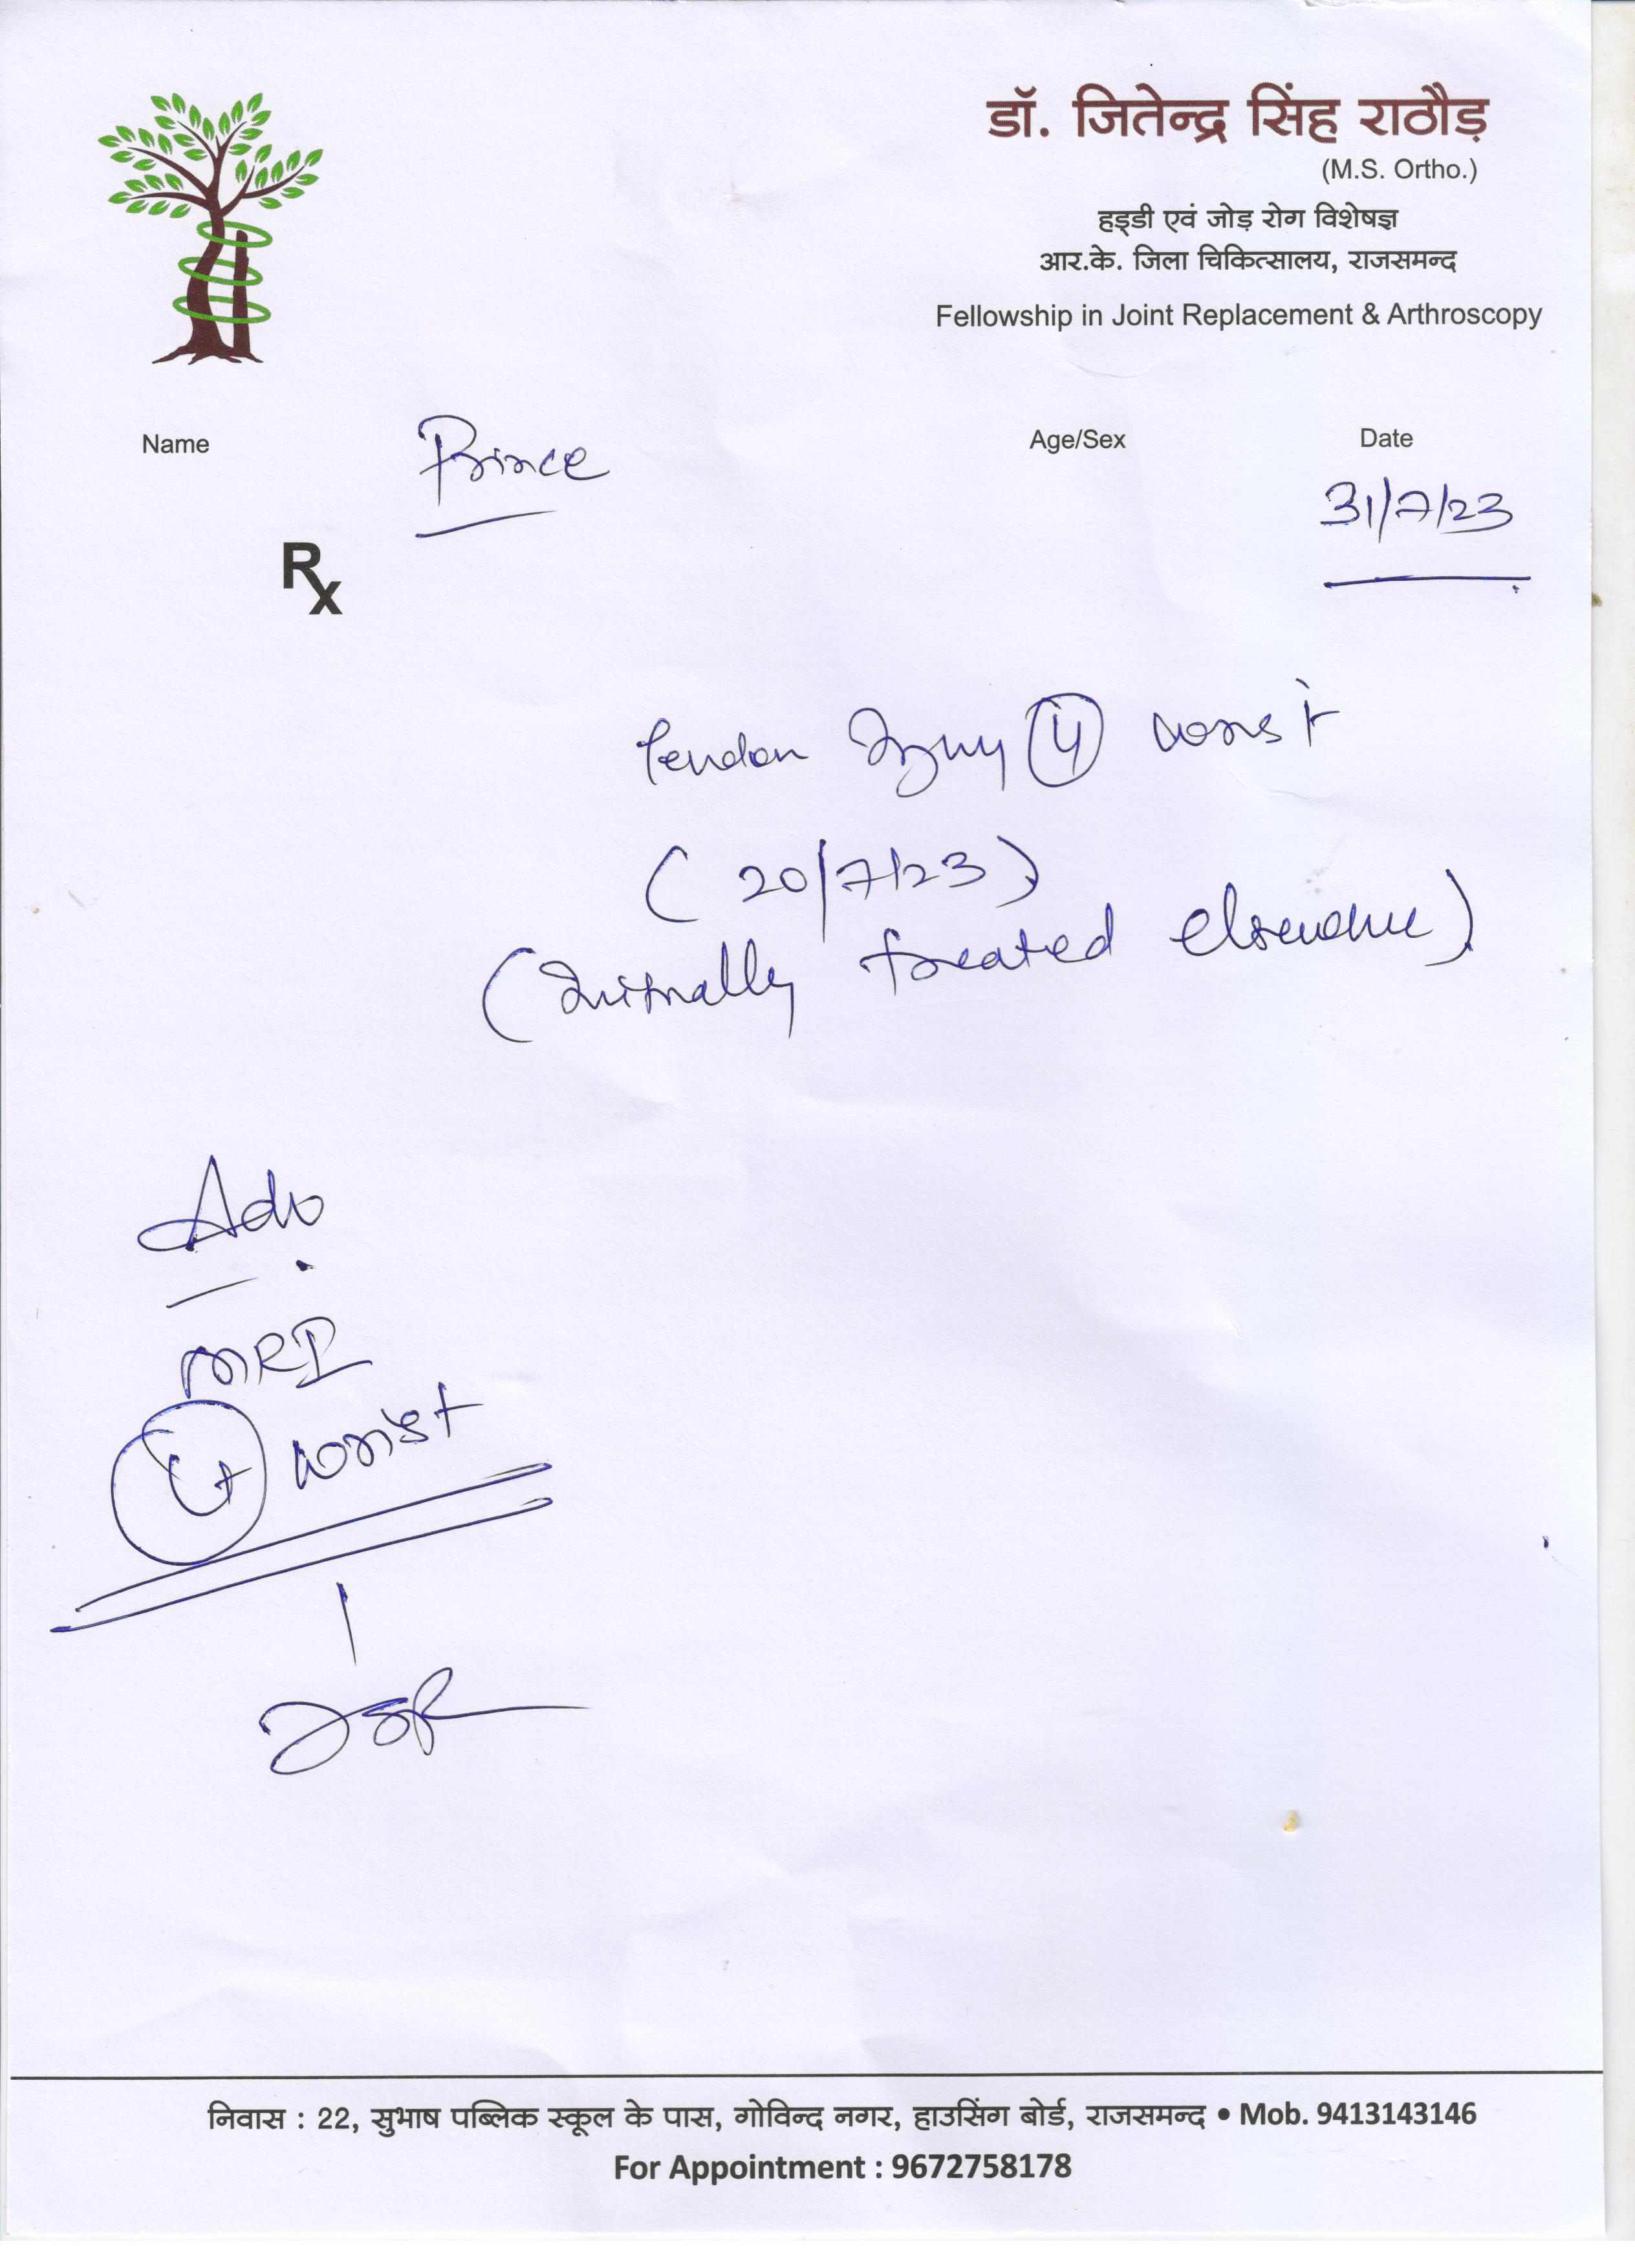 डॉ. जितेन्द्र सिंह राठौड़
(M.S. Ortho.)
हड्डी एवं जोड़ रोग विशेषज्ञ
आर.के. जिला चिकित्सालय, राजसमन्द
Fellowship in Joint Replacement & Arthroscopy
Name Prince Age/Sex Date
31/7/23
Rx
Tendon Injury wrist
(20/7/23)
(Initially treated elsewhere)
Adv
MRI
wrist
निवास : 22, सुभाष पब्लिक स्कूल के पास, गोविन्द नगर, हाउसिंग बोर्ड, राजसमन्द • Mob. 9413143146
For Appointment : 9672758178